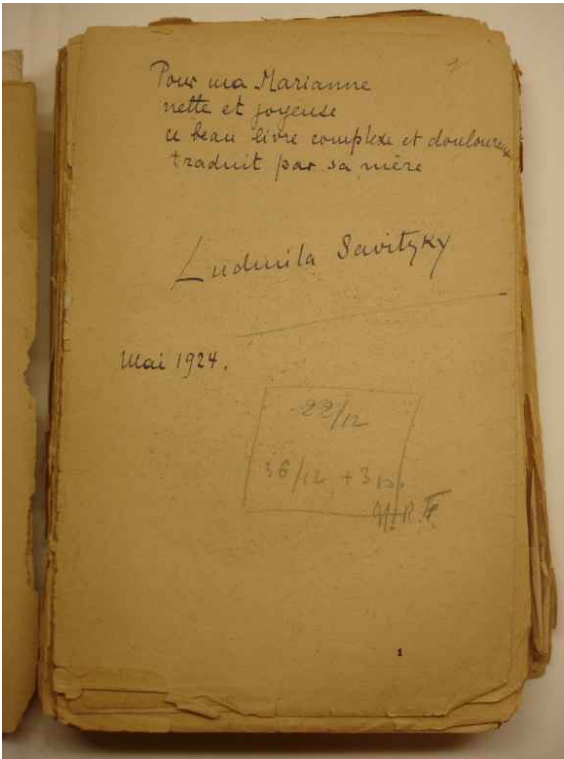 Pour ma Marianne
nette et joyeuse
ce beau livre complexe et douloureux
traduit par sa mère
Ludmila Savitzky
Mai 1924.
22/12
36/12 + 3 p.
N.R.F.
1